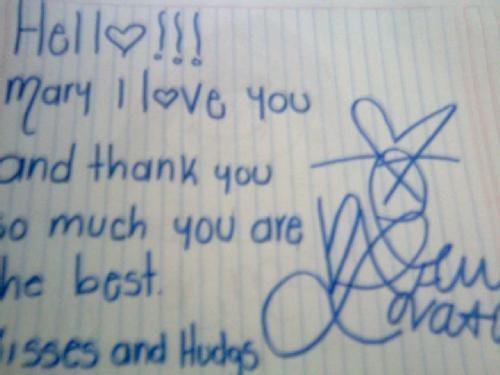 Hello!!!
Mary I love you
and thank you
so much you are
the best.
Kisses and Hudgs
Demi
Lovato